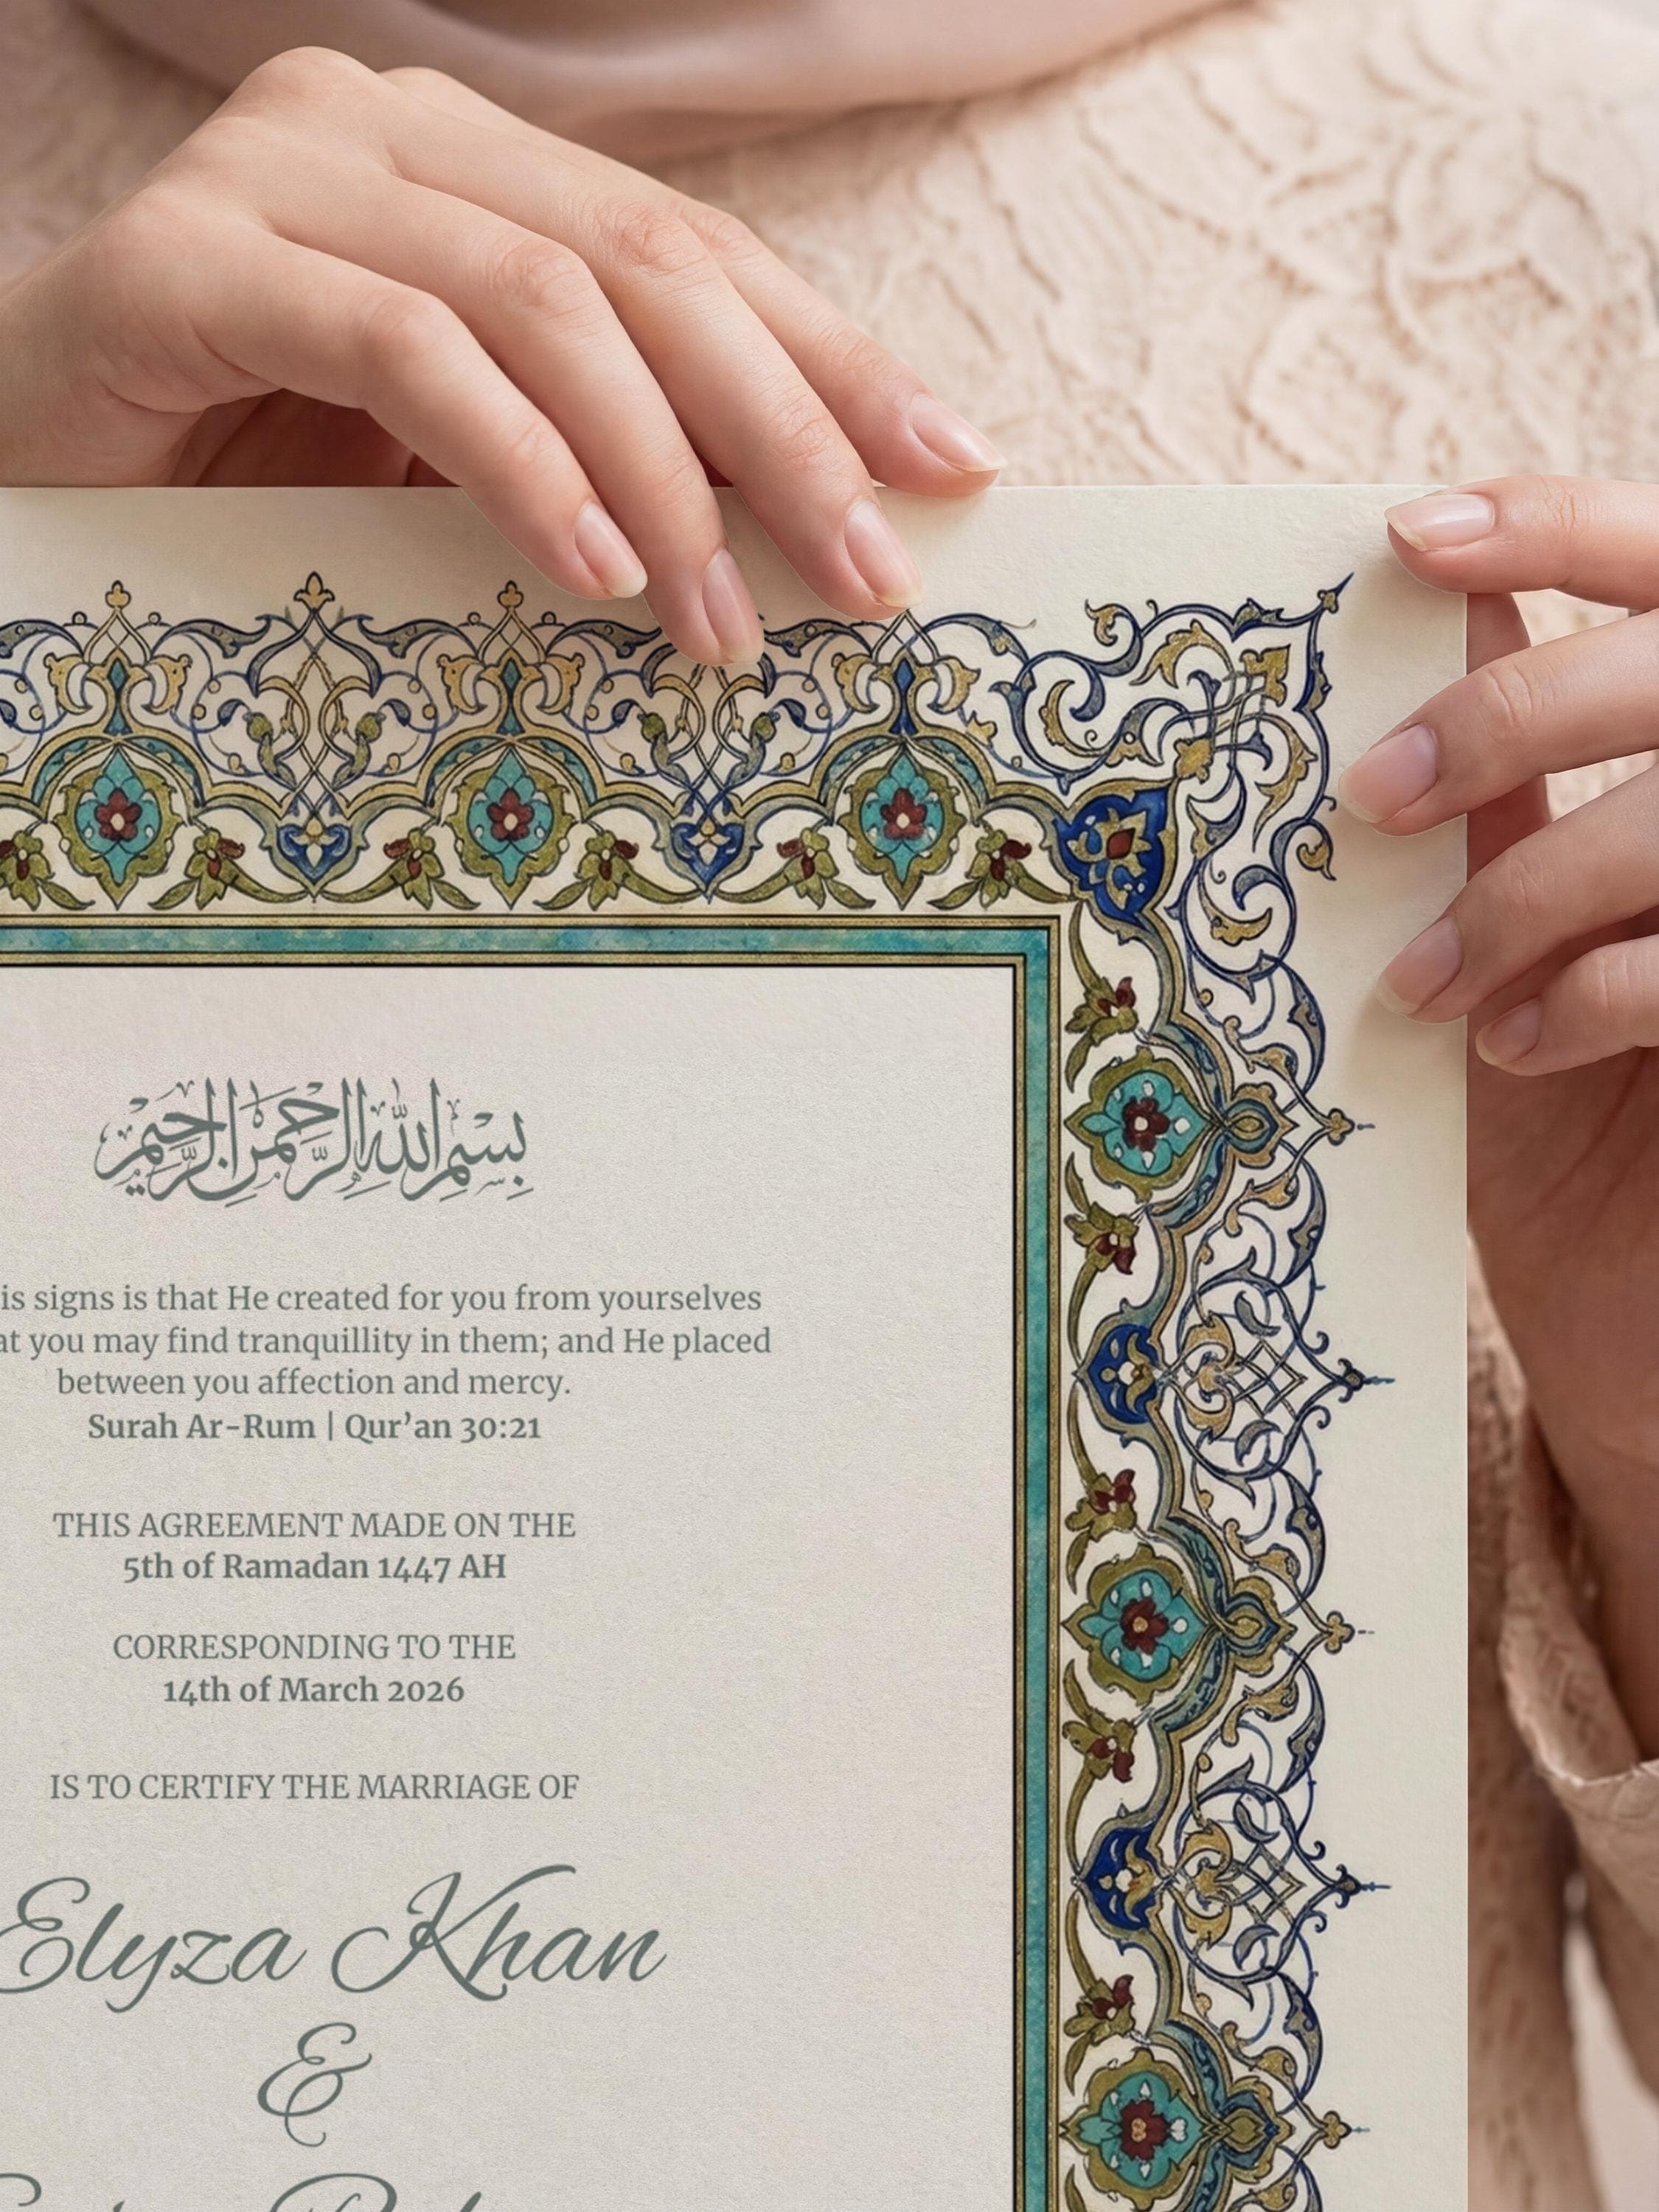 بسم الله الرحمن الرحيم
is signs is that He created for you from yourselves
at you may find tranquillity in them; and He placed
between you affection and mercy.
Surah Ar-Rum | Qur’an 30:21
THIS AGREEMENT MADE ON THE
5th of Ramadan 1447 AH
CORRESPONDING TO THE
14th of March 2026
IS TO CERTIFY THE MARRIAGE OF
Elyza Khan
&